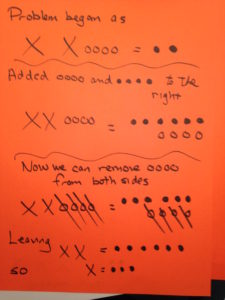 Problem began as
X X oooo = ••
Added oooo and •••• to the
right
XX oooo = ••••••
oooo
Now we can remove oooo
from both sides
XX oooo = ••••••
oooo
Leaving XX = ••••••
so X = •••